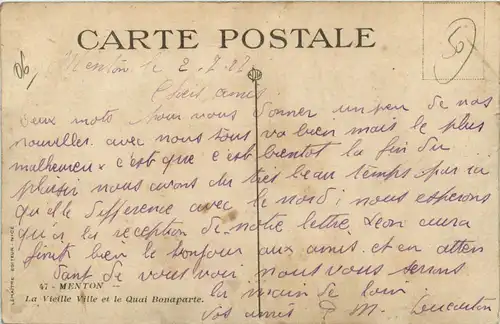 CARTE POSTALE
06
50
Menton le 2.7.22
Chers amis
Deux mots pour vous donner un peu de nos
nouvelles avec nous tous va bien mais le plus
malheureux c'est que c'est bientot la fin du
plaisir nous avons du tres beau temps par ici
qu'elle difference avec le nord; nous esperons
qu'a la reception de notre lettre, Leon aura
finit bien le bonjour aux amis et en atten
dant de vous voir nous vous serrons
la main de loin
Vos amis M.
47 - MENTON
La Vieille Ville et le Quai Bonaparte.
LEMAITRE EDITEUR, NICE